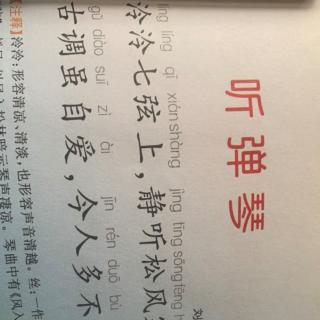 听弹琴
刘
líng líng qī xián shàng jìng tīng sōng fēng h
泠泠七弦上，静听松风
gǔ diào suī zì ài jīn rén duō bù
古调虽自爱，今人多不
注释】泠泠：形容清凉、清淡，也形容声音清越。丝：一作
风入松林暗示琴声凄凉。琴曲中有《风入